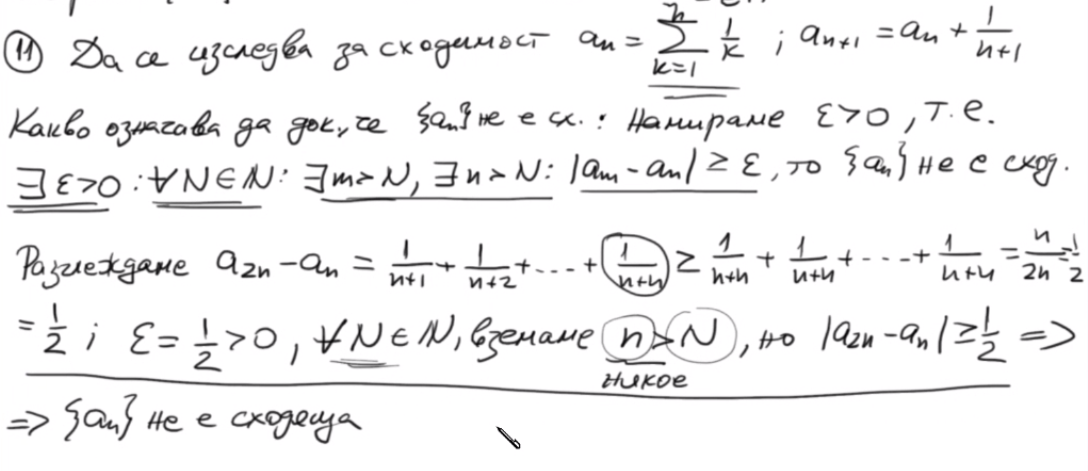 ⑪ Да се изследва за сходимост aₙ = ∑_{k=1}^{n} 1/k ; aₙ₊₁ = aₙ + 1/(n+1)
Какво означава да док., че {aₙ} не е сх.: Намираме ε>0, т.е.
∃ ε>0 : ∀N∈ℕ: ∃m>N, ∃n>N: |aₘ - aₙ| ≥ ε, то {aₙ} не е сход.
Разглеждаме a₂ₙ - aₙ = 1/(n+1) + 1/(n+2) + ... + 1/(n+n) ≥ 1/(n+n) + 1/(n+n) + ... + 1/(n+n) = n/2n = 1/2
= 1/2 ; ε = 1/2 > 0, ∀N∈ℕ, вземаме n > N, но |a₂ₙ - aₙ| ≥ 1/2 =>
някое
=> {aₙ} не е сходяща